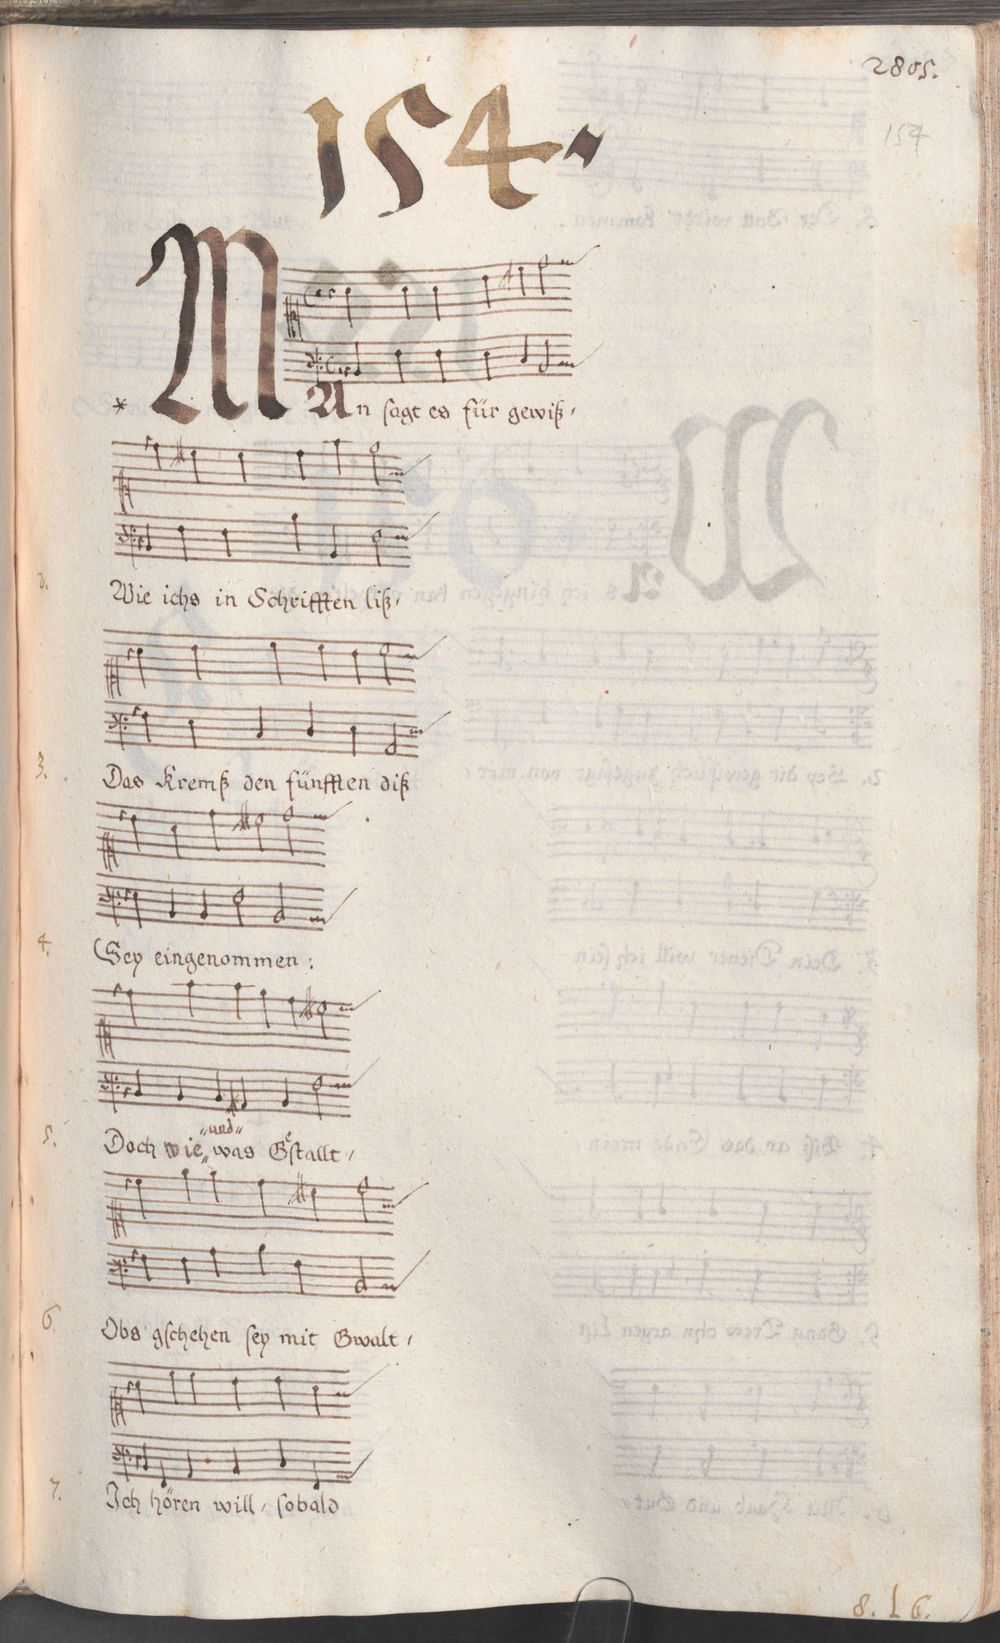 2805.
154
154
* MAn sagt es für gewiß,
Wie ichs in Schrifften liß,
3.
Das Kremß den fünfften diß
4.
Sey eingenommen:
5.
"und"
Doch wie„ was Gstallt,
6.
Obs gschehen sey mit Gwalt,
7.
Ich hören will, sobald